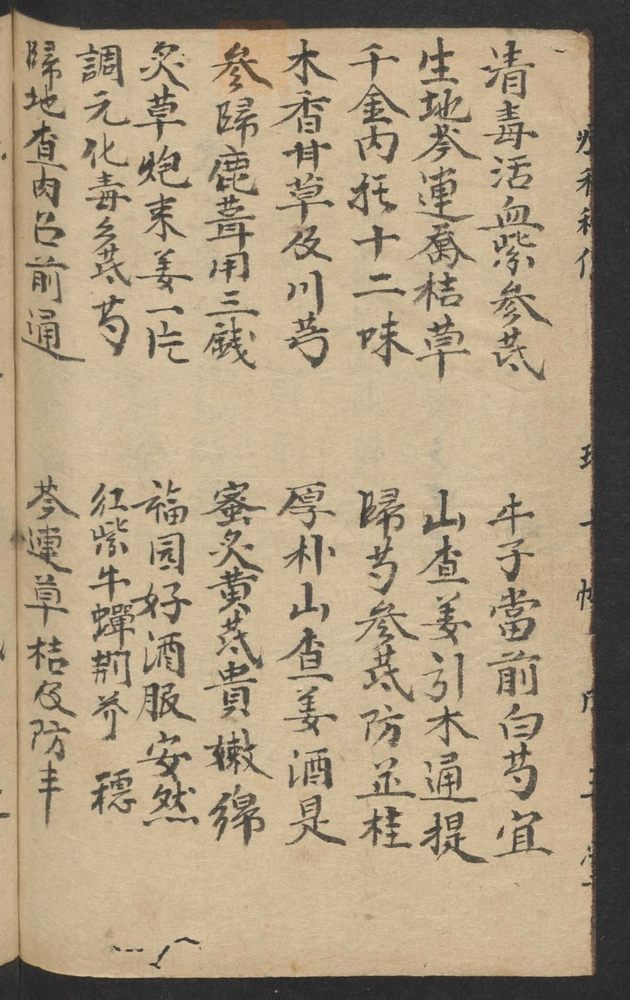 清毒活血紫參芪
牛子當前白芍宜
生地芩連喬桔草
山查姜引木通提
千金內托十二味
歸芍參芪防芷桂
木香甘草及川芎
厚朴山查姜酒是
參歸鹿茸用三錢
蜜炙黃芪貴嫩綿
炙草炮末姜一片
福园好酒服安然
調元化毒參芪芍
红紫牛蟬荆芥穗
歸地查肉以前通
芩連草桔及防丰